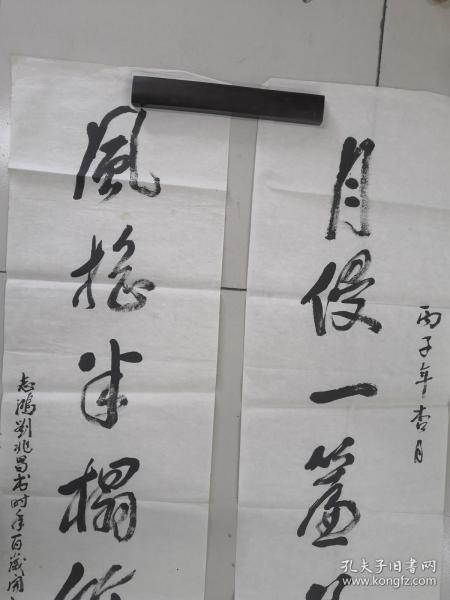 丙子年杏月
月侵一簾
風搖半榻
志鴻劉兆昌书时年百歲開
孔夫子旧书网
www.kongfz.com